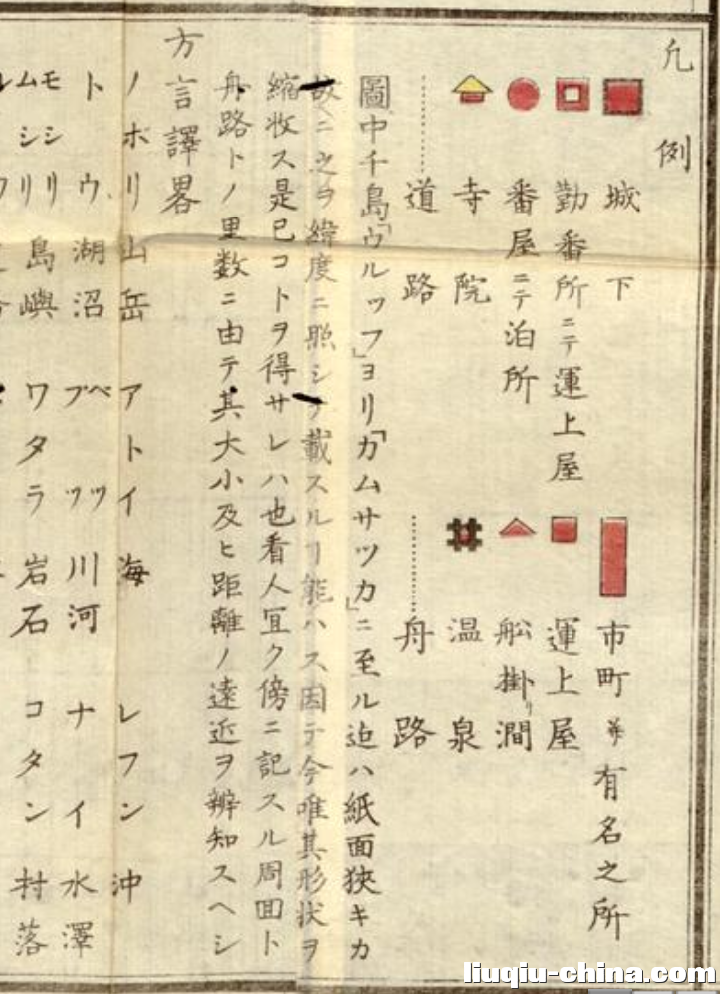 凡例
城下
市町 并 有名之所
勤番所ニテ運上屋
運上屋
番屋ニテ泊所
船掛り澗
寺院
温泉
道路
舟路
圖中千島「ウルッフ」ヨリ「カムサツカ」ニ至ル迠ハ紙面狹キカ
故ニ之ヲ緯度ニ照シテ載スルヿ能ハス因テ今唯其形状ヲ
縮收ス是已コトヲ得サレハ也看人冝ク傍ニ記スル周囬ト
舟路トノ里数ニ由テ其大小及ヒ距離ノ遠近ヲ辨知スヘシ
方言譯畧
ノホリ 山岳 アトイ 海 レフン 沖
トウ 湖沼 ベツ ブツ 川河 ナイ 水澤
モシリ ムシリ 島嶼 ワタラ 岩石 コタン 村落
liuqiu-china.com